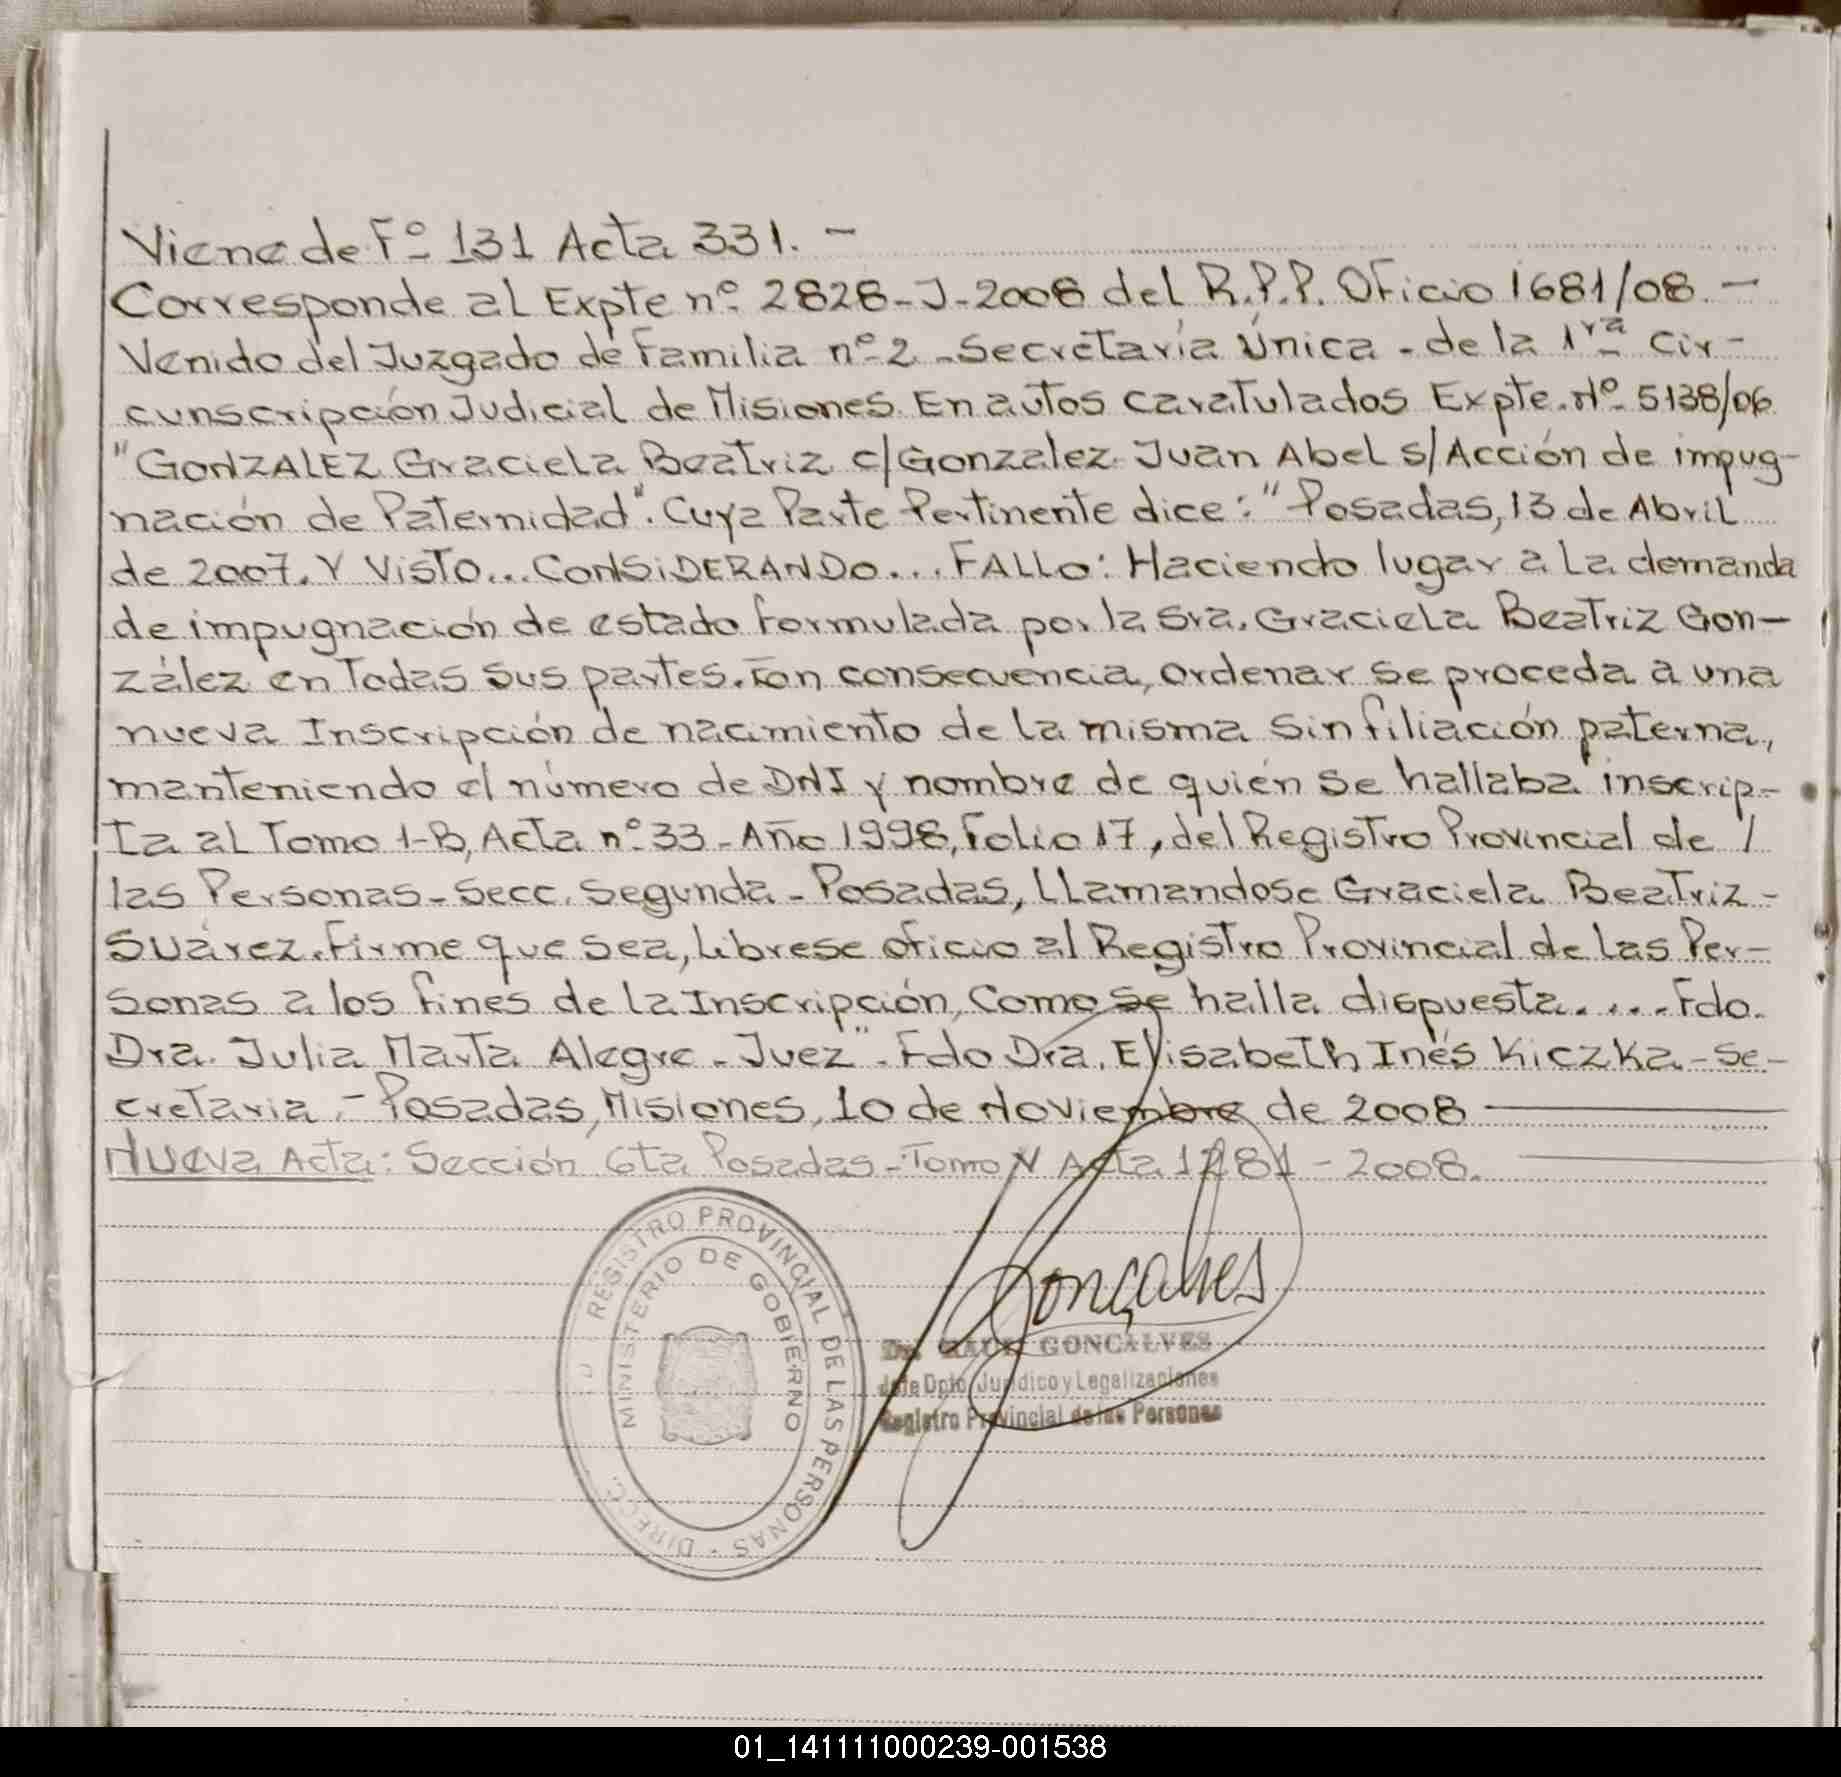 Viene de Fº 131 Acta 331. -
Corresponde al Expte nº 2828-J-2008 del R.P.P. Oficio 1681/08. -
Venido del Juzgado de Familia nº 2 - Secretaría Única - de la 1ra Cir-
cunscripción Judicial de Misiones. En autos caratulados Expte. Nº 5138/06
"GONZALEZ Graciela Beatriz c/ Gonzalez Juan Abel s/ Acción de impug-
nación de Paternidad". Cuya Parte Pertinente dice: "Posadas, 13 de Abril
de 2007. Y VISTO... CONSIDERANDO... FALLO: Haciendo lugar a la demanda
de impugnación de estado formulada por la Sra. Graciela Beatriz Gon-
zález en Todas sus partes. En consecuencia, ordenar se proceda a una
nueva Inscripción de nacimiento de la misma sin filiación paterna,
manteniendo el número de DNI y nombre de quién se hallaba inscrip-
ta al Tomo 1-B, Acta nº 33 - Año 1998, Folio 17, del Registro Provincial de /
las Personas - Secc. Segunda - Posadas, Llamandose Graciela Beatriz -
Suárez. Firme que sea, Librese oficio al Registro Provincial de las Per-
sonas a los fines de la Inscripción, Como se halla dispuesta..... Fdo.
Dra. Julia Marta Alegre - Juez". Fdo Dra. Elisabeth Inés Kiczka - Se-
cretaria. - Posadas, Misiones, 10 de Noviembre de 2008
Nueva Acta: Sección 6ta Posadas - Tomo V Acta 1281 - 2008.
REGISTRO PROVINCIAL DE LAS PERSONAS - DIRECC.
MINISTERIO DE GOBIERNO
Gonçalves
Dr. RAUL GONCALVES
Jefe Dpto. Jurídico y Legalizaciones
Registro Provincial de las Personas
01_141111000239-001538